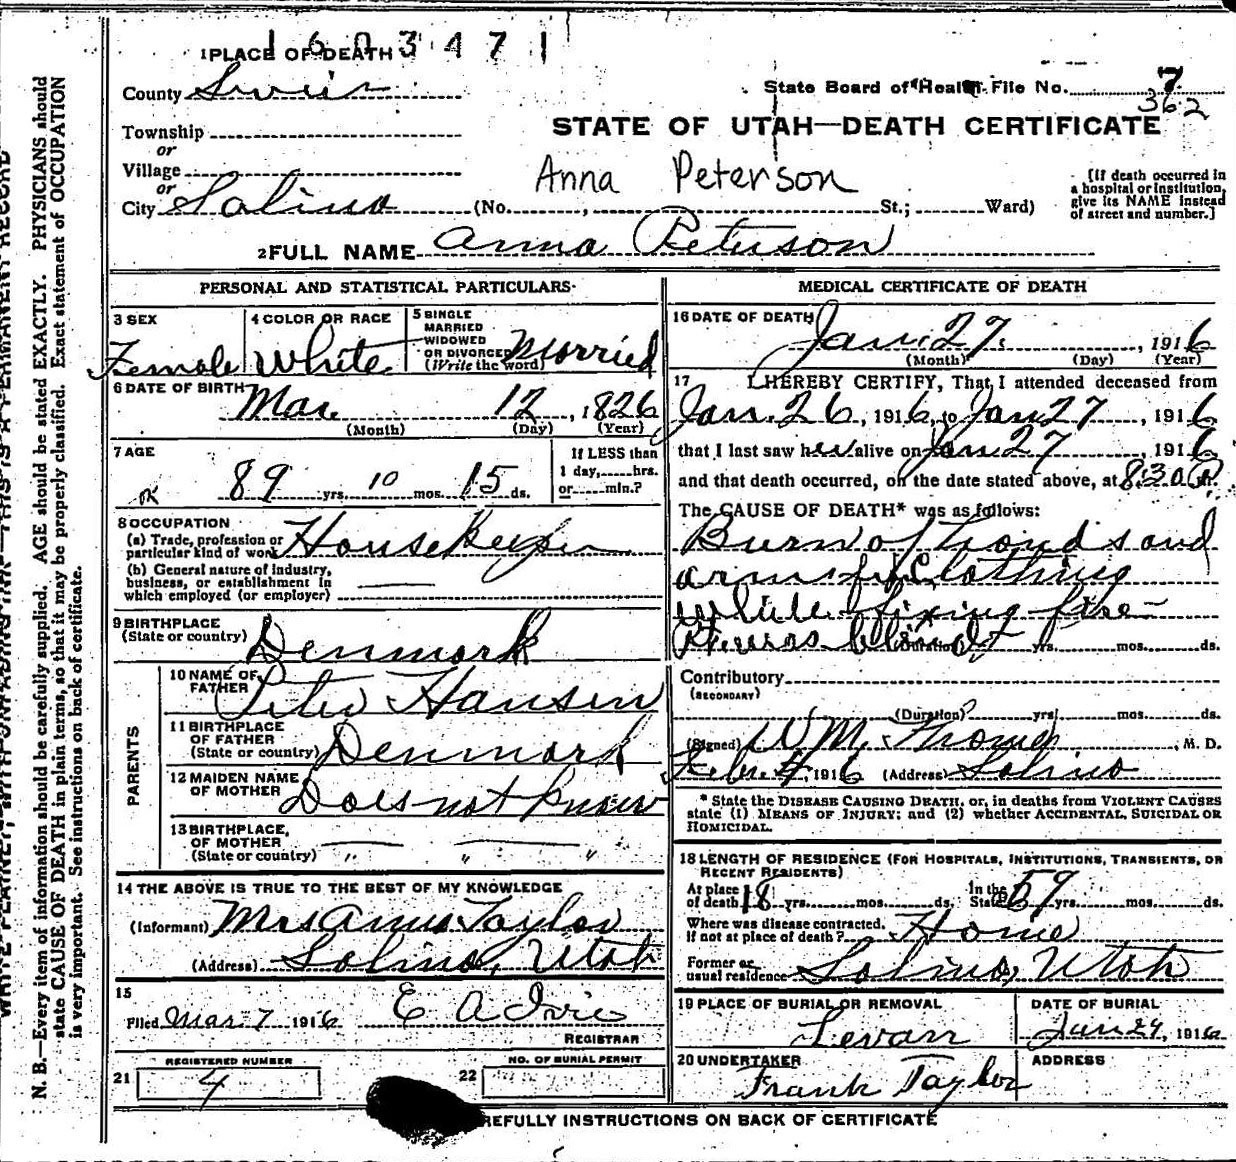 1603471
1 PLACE OF DEATH
County Sevier
State Board of Health File No. 7
362
Township
or
Village
or
City Salina (No. , St.; Ward)
STATE OF UTAH—DEATH CERTIFICATE
Anna Peterson
[If death occurred in
a hospital or institution,
give its NAME instead
of street and number.]
2 FULL NAME Anna Peterson
PERSONAL AND STATISTICAL PARTICULARS
3 SEX
Female
4 COLOR OR RACE
White
5 SINGLE
MARRIED
WIDOWED
OR DIVORCED
(Write the word) Married
6 DATE OF BIRTH
Mar. 12, 1826
(Month) (Day) (Year)
7 AGE
OK 89 yrs. 10 mos. 15 ds.
If LESS than
1 day, hrs.
or min.?
8 OCCUPATION
(a) Trade, profession or
particular kind of work Housekeeper
(b) General nature of industry,
business, or establishment in
which employed (or employer)
9 BIRTHPLACE
(State or country) Denmark
PARENTS
10 NAME OF
FATHER Peter Hansen
11 BIRTHPLACE
OF FATHER
(State or country) Denmark
12 MAIDEN NAME
OF MOTHER Does not know
13 BIRTHPLACE,
OF MOTHER
(State or country) " " "
14 THE ABOVE IS TRUE TO THE BEST OF MY KNOWLEDGE
(Informant) Mrs Taylor
(Address) Salina, Utah
15
Filed Mar. 7 1916 E A Ivie
REGISTRAR
REGISTERED NUMBER
21 4
NO. OF BURIAL PERMIT
22
MEDICAL CERTIFICATE OF DEATH
16 DATE OF DEATH
Jan. 27, 1916
(Month) (Day) (Year)
17 I HEREBY CERTIFY, That I attended deceased from
Jan. 26, 1916, to Jan 27, 1916
that I last saw her alive on Jan 27, 1916
and that death occurred, on the date stated above, at 830 m.
The CAUSE OF DEATH* was as follows:
Burn of hands and
arms Clothing
while fixing fire—
was blind
(Duration) yrs. mos. ds.
Contributory
(SECONDARY)
(Duration) yrs. mos. ds.
(Signed) , M. D.
Feb. 4, 1916 (Address) Salina
* State the DISEASE CAUSING DEATH, or, in deaths from VIOLENT CAUSES
state (1) MEANS OF INJURY; and (2) whether ACCIDENTAL, SUICIDAL OR
HOMICIDAL.
18 LENGTH OF RESIDENCE (FOR HOSPITALS, INSTITUTIONS, TRANSIENTS, OR
RECENT RESIDENTS)
At place
of death 18 yrs. mos. ds.
In the
State 59 yrs. mos. ds.
Where was disease contracted,
If not at place of death? Home
Former or
usual residence Salina, Utah
19 PLACE OF BURIAL OR REMOVAL
Levan
DATE OF BURIAL
Jan 29, 1916
20 UNDERTAKER
Frank Taylor
ADDRESS
REFULLY INSTRUCTIONS ON BACK OF CERTIFICATE
N. B.—Every item of information should be carefully supplied. AGE should be stated EXACTLY. PHYSICIANS should
state CAUSE OF DEATH in plain terms, so that it may be properly classified. Exact statement of OCCUPATION
is very important. See instructions on back of certificate.